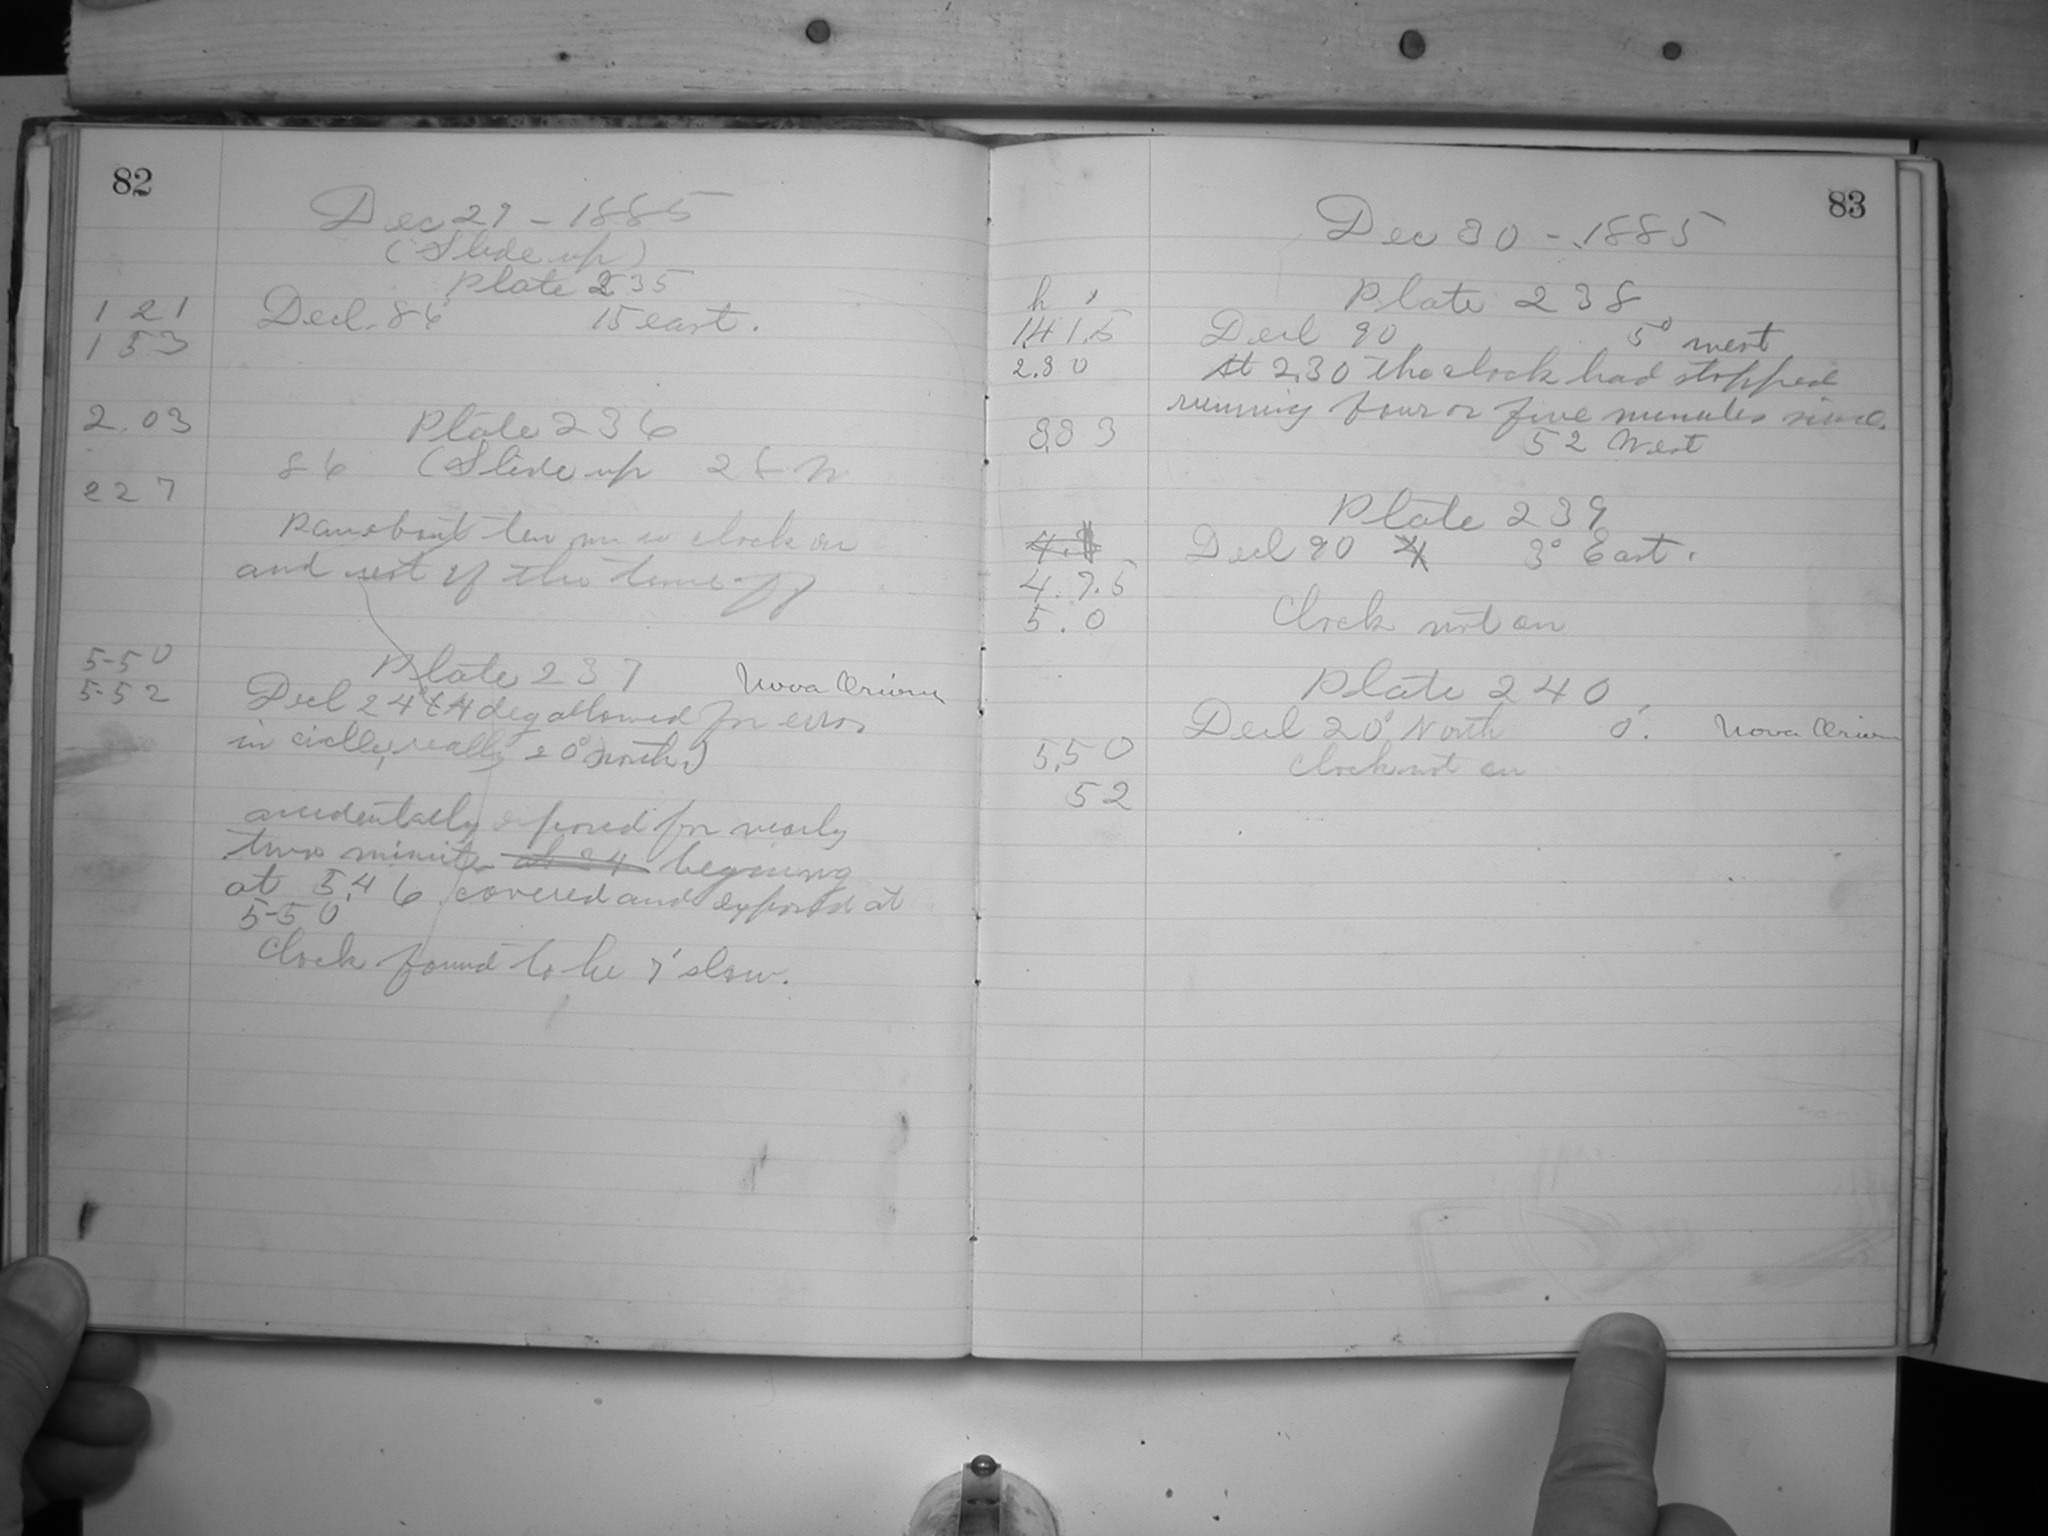 82
Dec 29 - 1885
(Slide up)
Plate 235
1 21 Decl. 86° 15 east.
1 53
2.03 Plate 236
86 (Slide up 28 W
2 27
Ran about ten min w clock on
and rest of the time off
5-50 Plate 237 Nova Orionis
5-52 Decl 24° (4 deg allowed for error
in circle, really 20° North.)
accidentally exposed for nearly
two minutes at 24 begining
at 5.46 covered and exposed at
5-50
Clock found to be 7' slow.
83
Dec 30 - 1885
h ' Plate 238
1.41.5 Decl 90 5° west
2.30 At 2.30 the clock had stopped
running four or five minutes since.
3.33 52 West
Plate 239
Decl 90 3° East.
4.7.5
5.0 Clock not on
Plate 240
Decl 20° North 0'. Nova Orionis
5.50 Clock not on
52